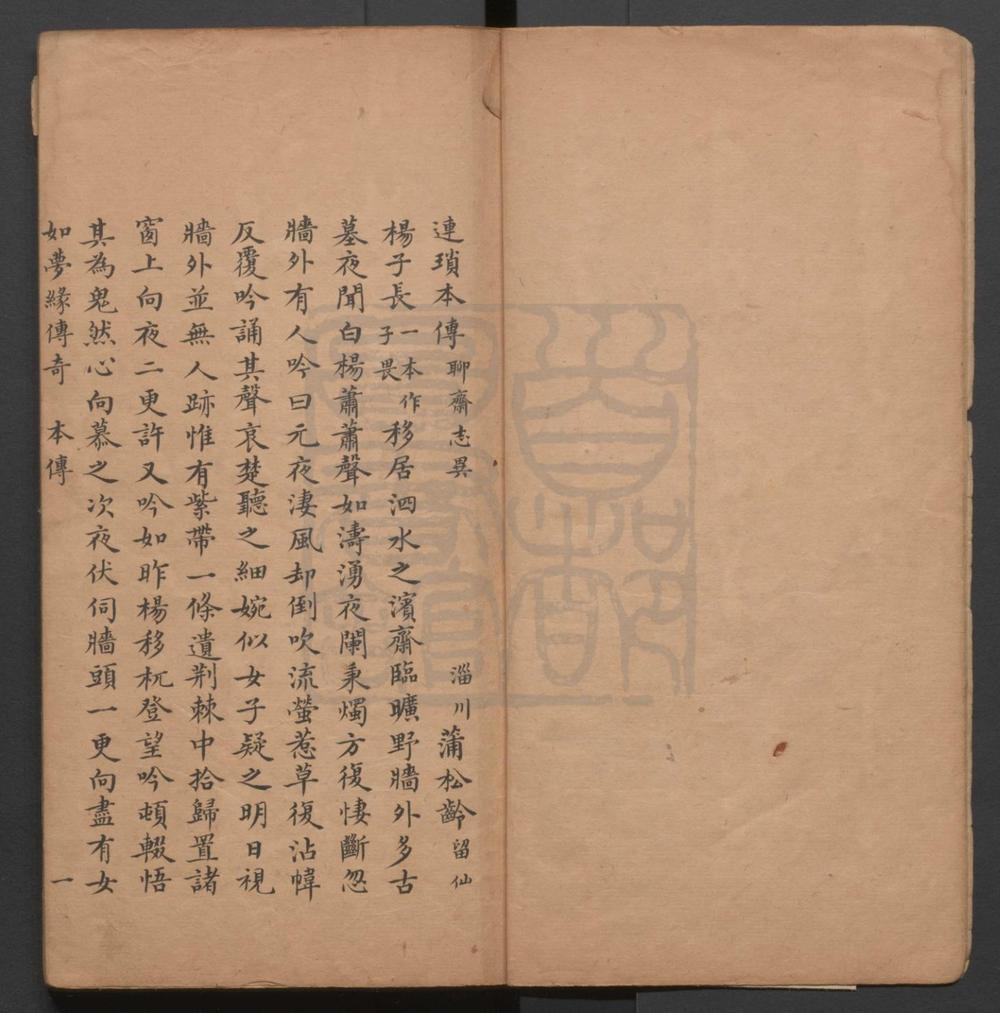 連瑣本傳聊齋志異 淄川蒲松齡留仙
楊子長一本作子畏移居泗水之濱齋臨曠野牆外多古
墓夜聞白楊蕭蕭聲如濤湧夜闌秉燭方復悽斷忽
牆外有人吟曰元夜淒風却倒吹流螢惹草復沾幃
反覆吟誦其聲哀楚聽之細婉似女子疑之明日視
牆外並無人跡惟有紫帶一條遺荆棘中拾歸置諸
窗上向夜二更許又吟如昨楊移杌登望吟頓輟悟
其為鬼然心向慕之次夜伏伺牆頭一更向盡有女
如夢緣傳奇 本傳 一